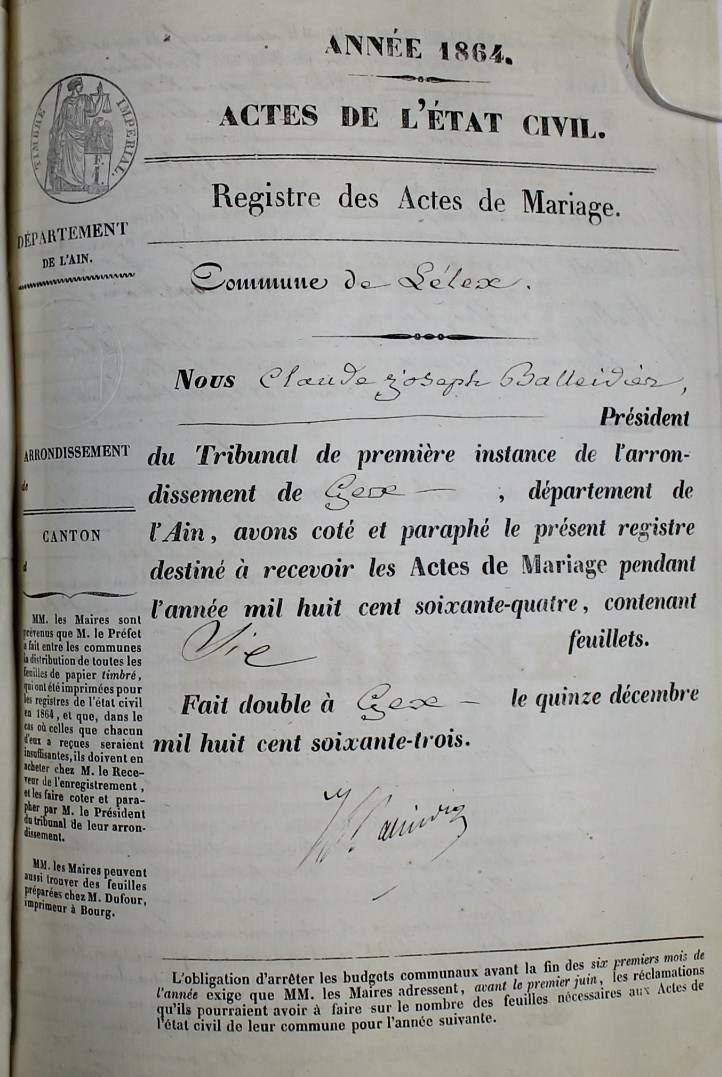 ANNÉE 1864.
ACTES DE L'ÉTAT CIVIL.
TIMBRE IMPÉRIAL.
Registre des Actes de Mariage.
DÉPARTEMENT
DE L'AIN.
Commune de Lélex.
Nous Claude Joseph Balleidier,
Président
du Tribunal de première instance de l'arron-
dissement de Gex — , département de
l'Ain, avons coté et paraphé le présent registre
destiné à recevoir les Actes de Mariage pendant
l'année mil huit cent soixante-quatre, contenant
feuillets.
Fait double à Gex — le quinze décembre
mil huit cent soixante-trois.
ARRONDISSEMENT
de
CANTON
d
MM. les Maires sont
prévenus que M. le Préfet
a fait entre les communes
la distribution de toutes les
feuilles de papier timbré,
qui ont été imprimées pour
les registres de l'état civil
en 1864, et que, dans le
cas où celles que chacun
d'eux a reçues seraient
insuffisantes, ils doivent en
acheter chez M. le Rece-
veur de l'enregistrement,
et les faire coter et para-
pher par M. le Président
du tribunal de leur arron-
dissement.
MM. les Maires peuvent
aussi trouver des feuilles
préparées chez M. Dufour,
imprimeur à Bourg.
L'obligation d'arrêter les budgets communaux avant la fin des six premiers mois de
l'année exige que MM. les Maires adressent, avant le premier juin, les réclamations
qu'ils pourraient avoir à faire sur le nombre des feuilles nécessaires aux Actes de
l'état civil de leur commune pour l'année suivante.